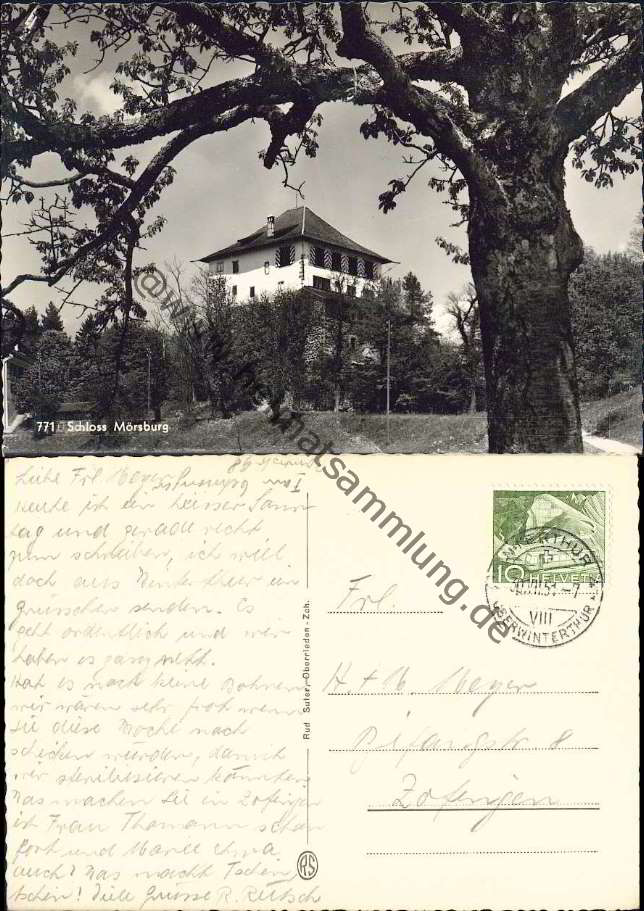 771 Schloss Mörsburg
@www.heimatsammlung.de
Liebe Frl Meyer
Heute ist ein heisser Sonn
tag und gerade recht
zum schreiben, ich will
doch aus Winterthur ein
grüsschen senden. Es
geht ordentlich und wir
haben es ganz nett.
Hat es noch keine Bohnen
wir wären sehr froh wenn
sie diese Woche noch
schicken würden, damit
wir sterilisieren könnten
Was machen Sie in Zofingen
ist Frau Thomann schon
fort und
auch? Was macht Tschen
tschen! Viele Grüsse R. Rütsch
Rud Suter, Oberrieden-Zch.
RS
WINTERTHUR
VIII
OBERWINTERTHUR
10 HELVETIA
Frl.
H + M. Meyer
Bifangstr 8
Zofingen